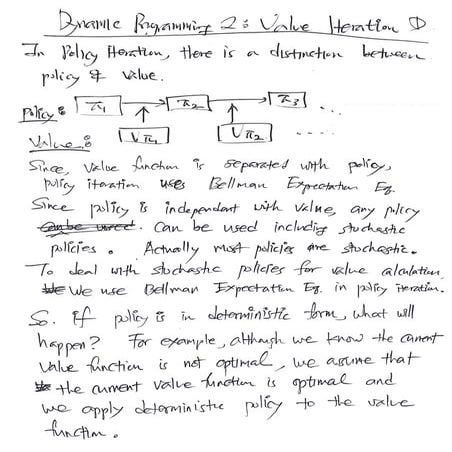 Dynamic Programming 2: Value Iteration ①
In Policy Iteration, there is a distinction between
policy & value.
Policy: π1 → π2 → π3 ...
Value: Vπ1 Vπ2 ....
Since, value function is seperated with policy,
policy iteration uses Bellman Expectation Eq.
Since policy is independent with value, any policy
can be used. can be used including stochastic
policies. Actually most policies are stochastic.
To deal with stochastic policies for value calculation,
We use Bellman Expectation Eq. in policy iteration.
So. if policy is in deterministic form, what will
happen? For example, although we know the current
value function is not optimal, we assume that
the current value function is optimal and
we apply deterministic policy to the value
function.